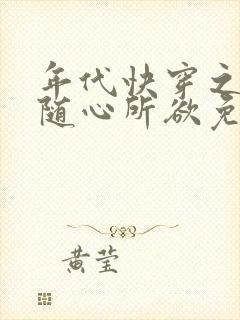 年代快穿之
随心所欲免
黄莹